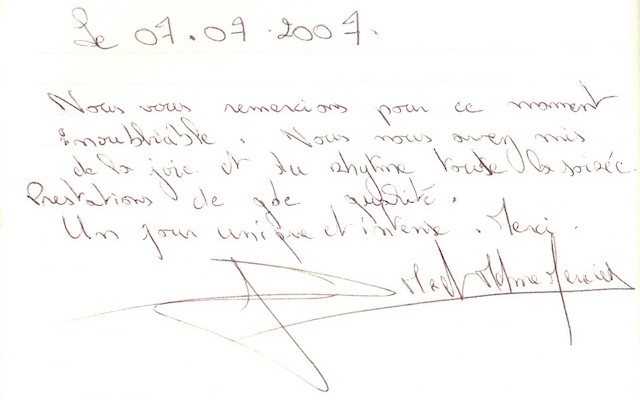 Le 07.07.2007.
Nous vous remercions pour ce moment
inoubliable. Nous nous avez mis
de la joie et du rhytme toute la soirée.
Prestations de gde qualité.
Un jour unique et intense. Merci.